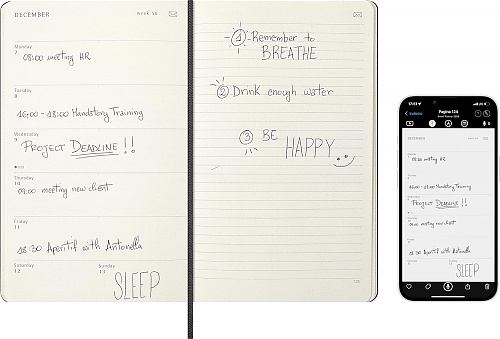 DECEMBER
WEEK 50
Monday
7
08:00 meeting HR
Tuesday
8
16:00 - 18:00 Mandatory Training
Wednesday
9
PROJECT DEADLINE !!
Thursday
10
09:00 meeting new client
Friday
11
18:30 Aperitif with Antonella
Saturday
12
Sunday
13
SLEEP
1 - Remember to
BREATHE
2 Drink enough water
3 BE
HAPPY
17:51
Pagina 124
DECEMBER
08:00 meeting HR
16:00 - 18:00 Mandatory Training
PROJECT DEADLINE !!
09:00 meeting new client
18:30 Aperitif with Antonella
SLEEP